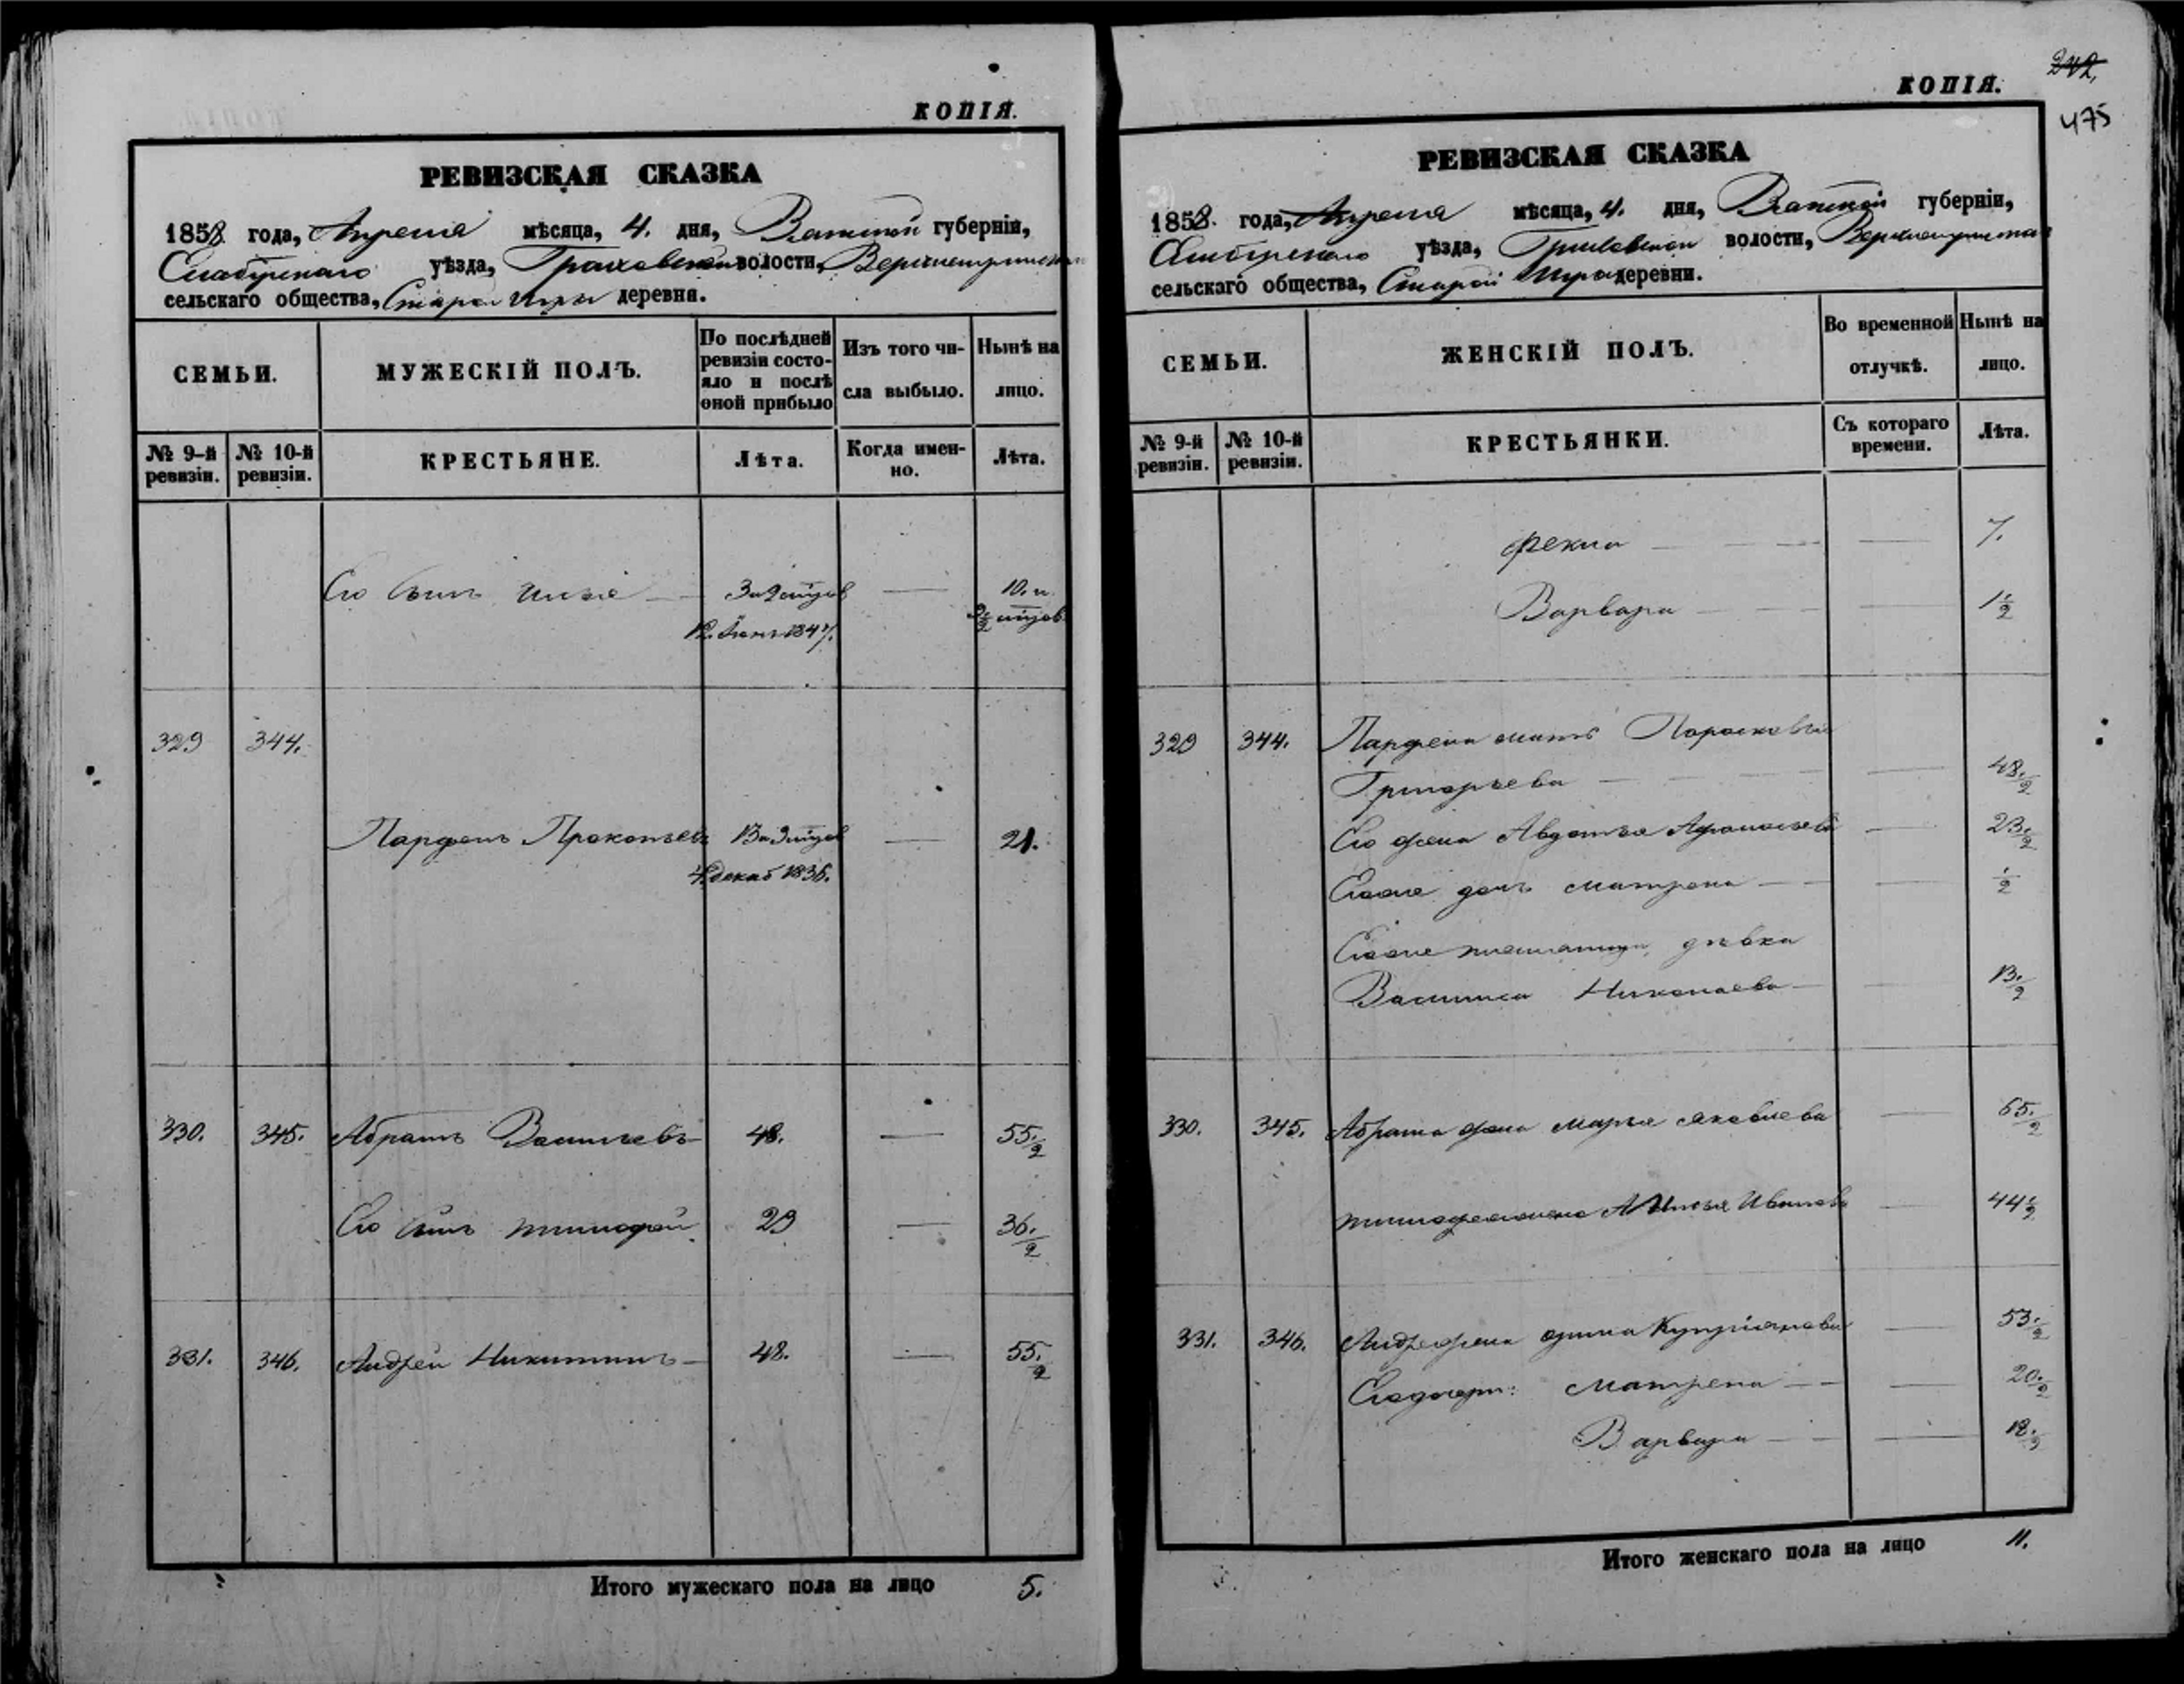 КОПІЯ.
РЕВИЗСКАЯ СКАЗКА
1858 года, Апреля мѣсяца, 4. дня, Вятской губерніи,
Елабугскаго уѣзда, Граховской волости,
сельскаго общества, Старой Игры деревня.
СЕМЬИ. МУЖЕСКІЙ ПОЛЪ. По послѣдней ревизіи состояло и послѣ оной прибыло Изъ того числа выбыло. Нынѣ на лицо.
№ 9-й ревизіи. № 10-й ревизіи. КРЕСТЬЯНЕ. Лѣта. Когда именно. Лѣта.
Его сынъ Илья 10. и
12. 1847.
329 344.
Парфенъ Прокопьевъ 21.
4 декаб 1836.
330. 345. Абрамъ Васильевъ 48. 55 1/2
Его сынъ Тимофей 29 36 1/2
331. 346. Андрей Никитинъ 48. 55 1/2
Итого мужескаго пола на лицо 5.
242,
475
КОПІЯ.
РЕВИЗСКАЯ СКАЗКА
1858. года, Апреля мѣсяца, 4. дня, Вятской губерніи,
Елабугскаго уѣзда, Граховской волости,
сельскаго общества, Старой Игры деревни.
СЕМЬИ. ЖЕНСКІЙ ПОЛЪ. Во временной отлучкѣ. Нынѣ на лицо.
№ 9-й ревизіи. № 10-й ревизіи. КРЕСТЬЯНКИ. Съ котораго времени. Лѣта.
Фекла 7.
Варвара 1 1/2
329 344. Парфена мать Парасковья
Григорьева 48 1/2
Его жена Авдотья Афанасьева 23 1/2
Егоже дочь Матрена 1/2
Егоже племянница, дѣвка
Василиса Николаева 13 1/2
330. 345. Абрама жена Марья Яковлева 65 1/2
Тимофея жена Иванова 44 1/2
331. 346. Андрея жена Куприянова 53 1/2
Его дочери: Матрена 20 1/2
Варвара 18 1/2
Итого женскаго пола на лицо 11.